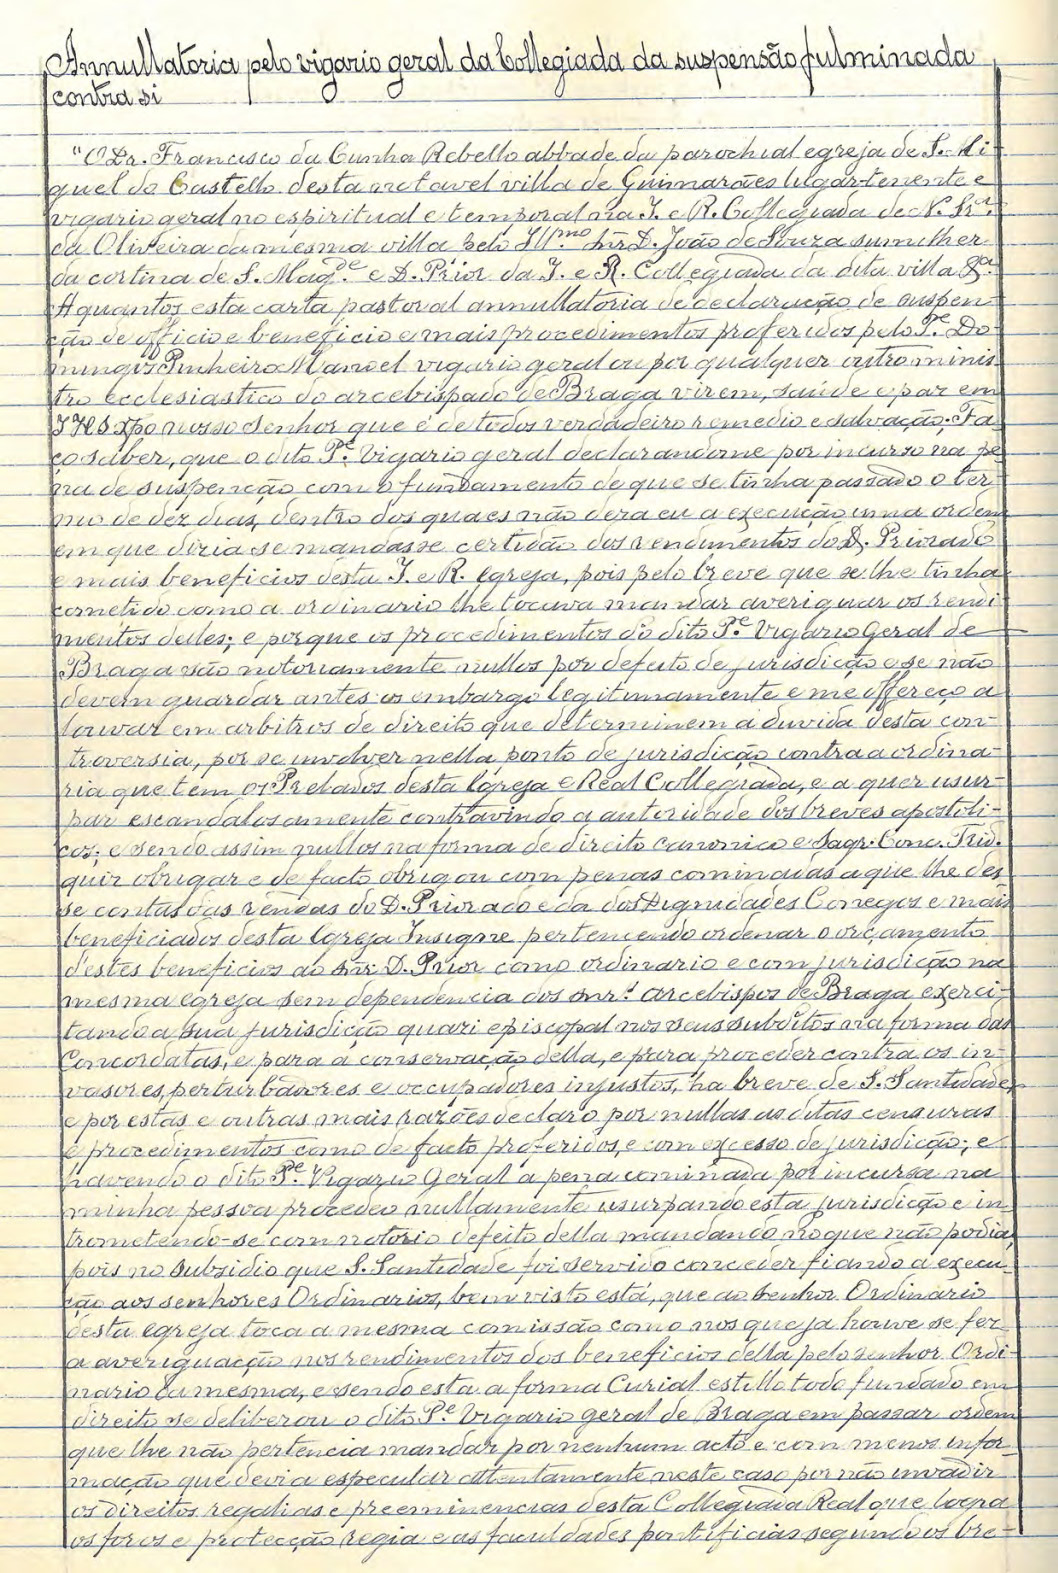 Annullatoria pelo vigario geral da Collegiada da suspensão fulminada
contra si
"O Dr. Francisco da Cunha Rebello abbade da parochial egreja de S. Mi-
guel do Castello desta notavel villa de Guimarães lugar-tenente e
vigario geral no espiritual e temporal na I. e R. Collegiada de N. Srª.
da Oliveira da mesma villa pelo Illmo Snr D. João de Souza sumilher
da cortina de S. Magde. e D. Prior da I. e R. Collegiada da dita villa &ª.
A quantos esta carta pastoral annullatoria de declaração de suspen-
ção de officio e beneficio e mais procedimentos proferidos pelo Pe. Do-
mingos Pinheiro Manoel vigario geral ou por qualquer outro minis-
tro ecclesiastico do arcebispado de Braga virem, saúde e paz em
IHS Xpo nosso Senhor que é de todos verdadeiro remedio e salvação. Fa-
ço saber, que o dito Pe. Vigario geral declarandome por incurso na pe
na de suspenção com o fundamento de que se tinha passado o ter-
mo de dez dias, dentro dos quaes não dera eu a execução uma ordem
em que dizia se mandasse certidão dos rendimentos do D. Priorado
e mais beneficios desta I. e R. Egreja, pois pelo breve que se lhe tinha
cometido como a ordinario lhe tocava mandar averiguar os rendi
mentos delles; e porque os procedimentos do dito Pe. Vigario Geral de
Braga são notoriamente nullos por defeito de jurisdicção e se não
devem guardar antes os embargo legitimamente e me offereço a
louvar em arbitros de direito que determinem a duvida desta con-
troversia, por se involver nella ponto de jurisdicção contra a ordina-
ria que tem os Prelados desta Egreja e Real Collegiada, e a quer usur-
par escandalosamente contravindo a autoridade dos breves apostoli-
cos; e sendo assim nullos na forma de direito canonico e Sagr. Conc. Trid.
quiz obrigar e de facto obrigou com penas cominadas a que lhe des-
se contas das rendas do D. Priorado e da dos Dignidades Conegos e mais
beneficiados desta Egreja Insigne pertencendo ordenar o orçamento
d'estes beneficios ao snr. D. Prior como ordinario e com jurisdicção na
mesma egreja sem dependencia dos snrs. Arcebispos de Braga exerci-
tando a sua jurisdicção quazi episcopal nos seus subditos na forma das
Concordatas, e para a conservação della, e para proceder contra os in-
vasores, perturbadores e occupadores injustos, ha breve de S. Santidade,
e por estas e outras mais razões declaro por nullas as ditas censuras
e procedimentos como de facto proferidos, e com excesso de jurisdicção; e
havendo o dito Pe. Vigario Geral a pena cominada por incursa na
minha pessoa procedeo nullamente usurpando esta jurisdicção e in
trometendo-se com notorio defeito della mandando no que não podia,
pois no subsidio que S. Santidade foi servido conceder fiando a execu-
ção aos senhores Ordinarios, bem visto está, que ao Senhor Ordinario
desta egreja toca a mesma comissão como nos que ja houve se fez
a averiguacção nos rendimentos dos beneficios della pelo senhor Ordi-
nario da mesma, e sendo esta a forma Curial estillo todo fundado em
direito se deliberou o dito Pe. Vigario geral de Braga em passar ordem
que lhe não pertencia mandar por nenhum acto e com menos infor-
mação que devia especular attentamente neste caso por não invadir
os direitos regalias e preeminencias desta Collegiada Real que logra
os foros e protecção regia e as faculdades pontificias segundo os bre-